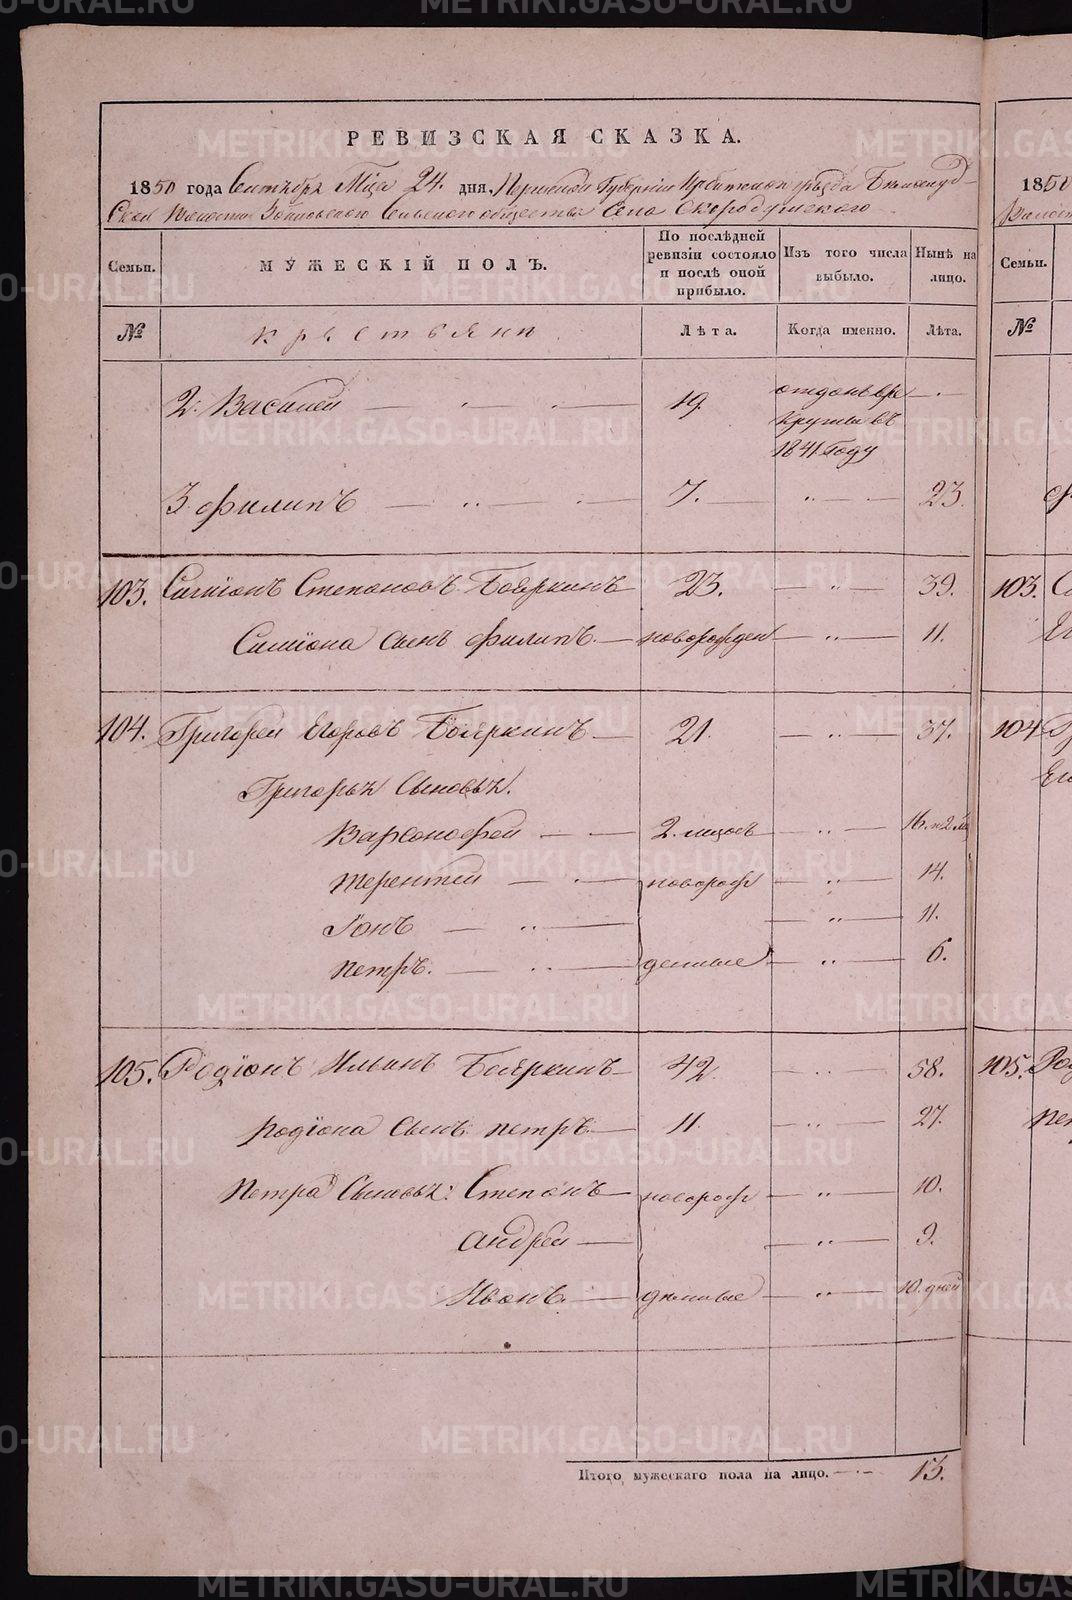 РЕВИЗСКАЯ СКАЗКА.
1850 года Сентября Мца 24. дня, Пермской Губернiи Ирбитскаго уѣзда
Волости Сельскаго общества Села Скородумскаго
Семьи.
МУЖЕСКIЙ ПОЛЪ.
По послѣдней ревизiи состояло и послѣ оной прибыло.
Изъ того числа выбыло.
Нынѣ на лицо.
№
Крестьяне
Лѣта.
Когда именно.
Лѣта.
2. Василей — 19. отданъ въ рекруты въ 1841 Году —
3 Филипъ — 7. — „ — 23.
103. Симiонъ Степановъ Бояркинъ 23. — „ — 39.
Симiона сынъ Филипъ. — новорожден — „ — 11.
104. Григорей Егоровъ Бояркинъ — 21. — „ — 37.
Григорья Сыновья.
Варсонофей — 2. мцовъ — „ — 16. и 2 мц
Терентей — новорож — „ — 14.
Iонъ — „ — 11.
Петръ. — денные — „ — 6.
105. Родiонъ Ильинъ Бояркинъ — 42 — „ — 58.
Родiона Сынъ Петръ. — 11. — „ — 27.
Петра Сыновья: Степанъ — новорож — „ — 10.
Андрей — „ — 9.
Иванъ. — денные — „ — 10. дней
Итого мужескаго пола на лицо. — 13.
1850
Семьи.
№
103.
104
105.
METRIKI.GASO-URAL.RU